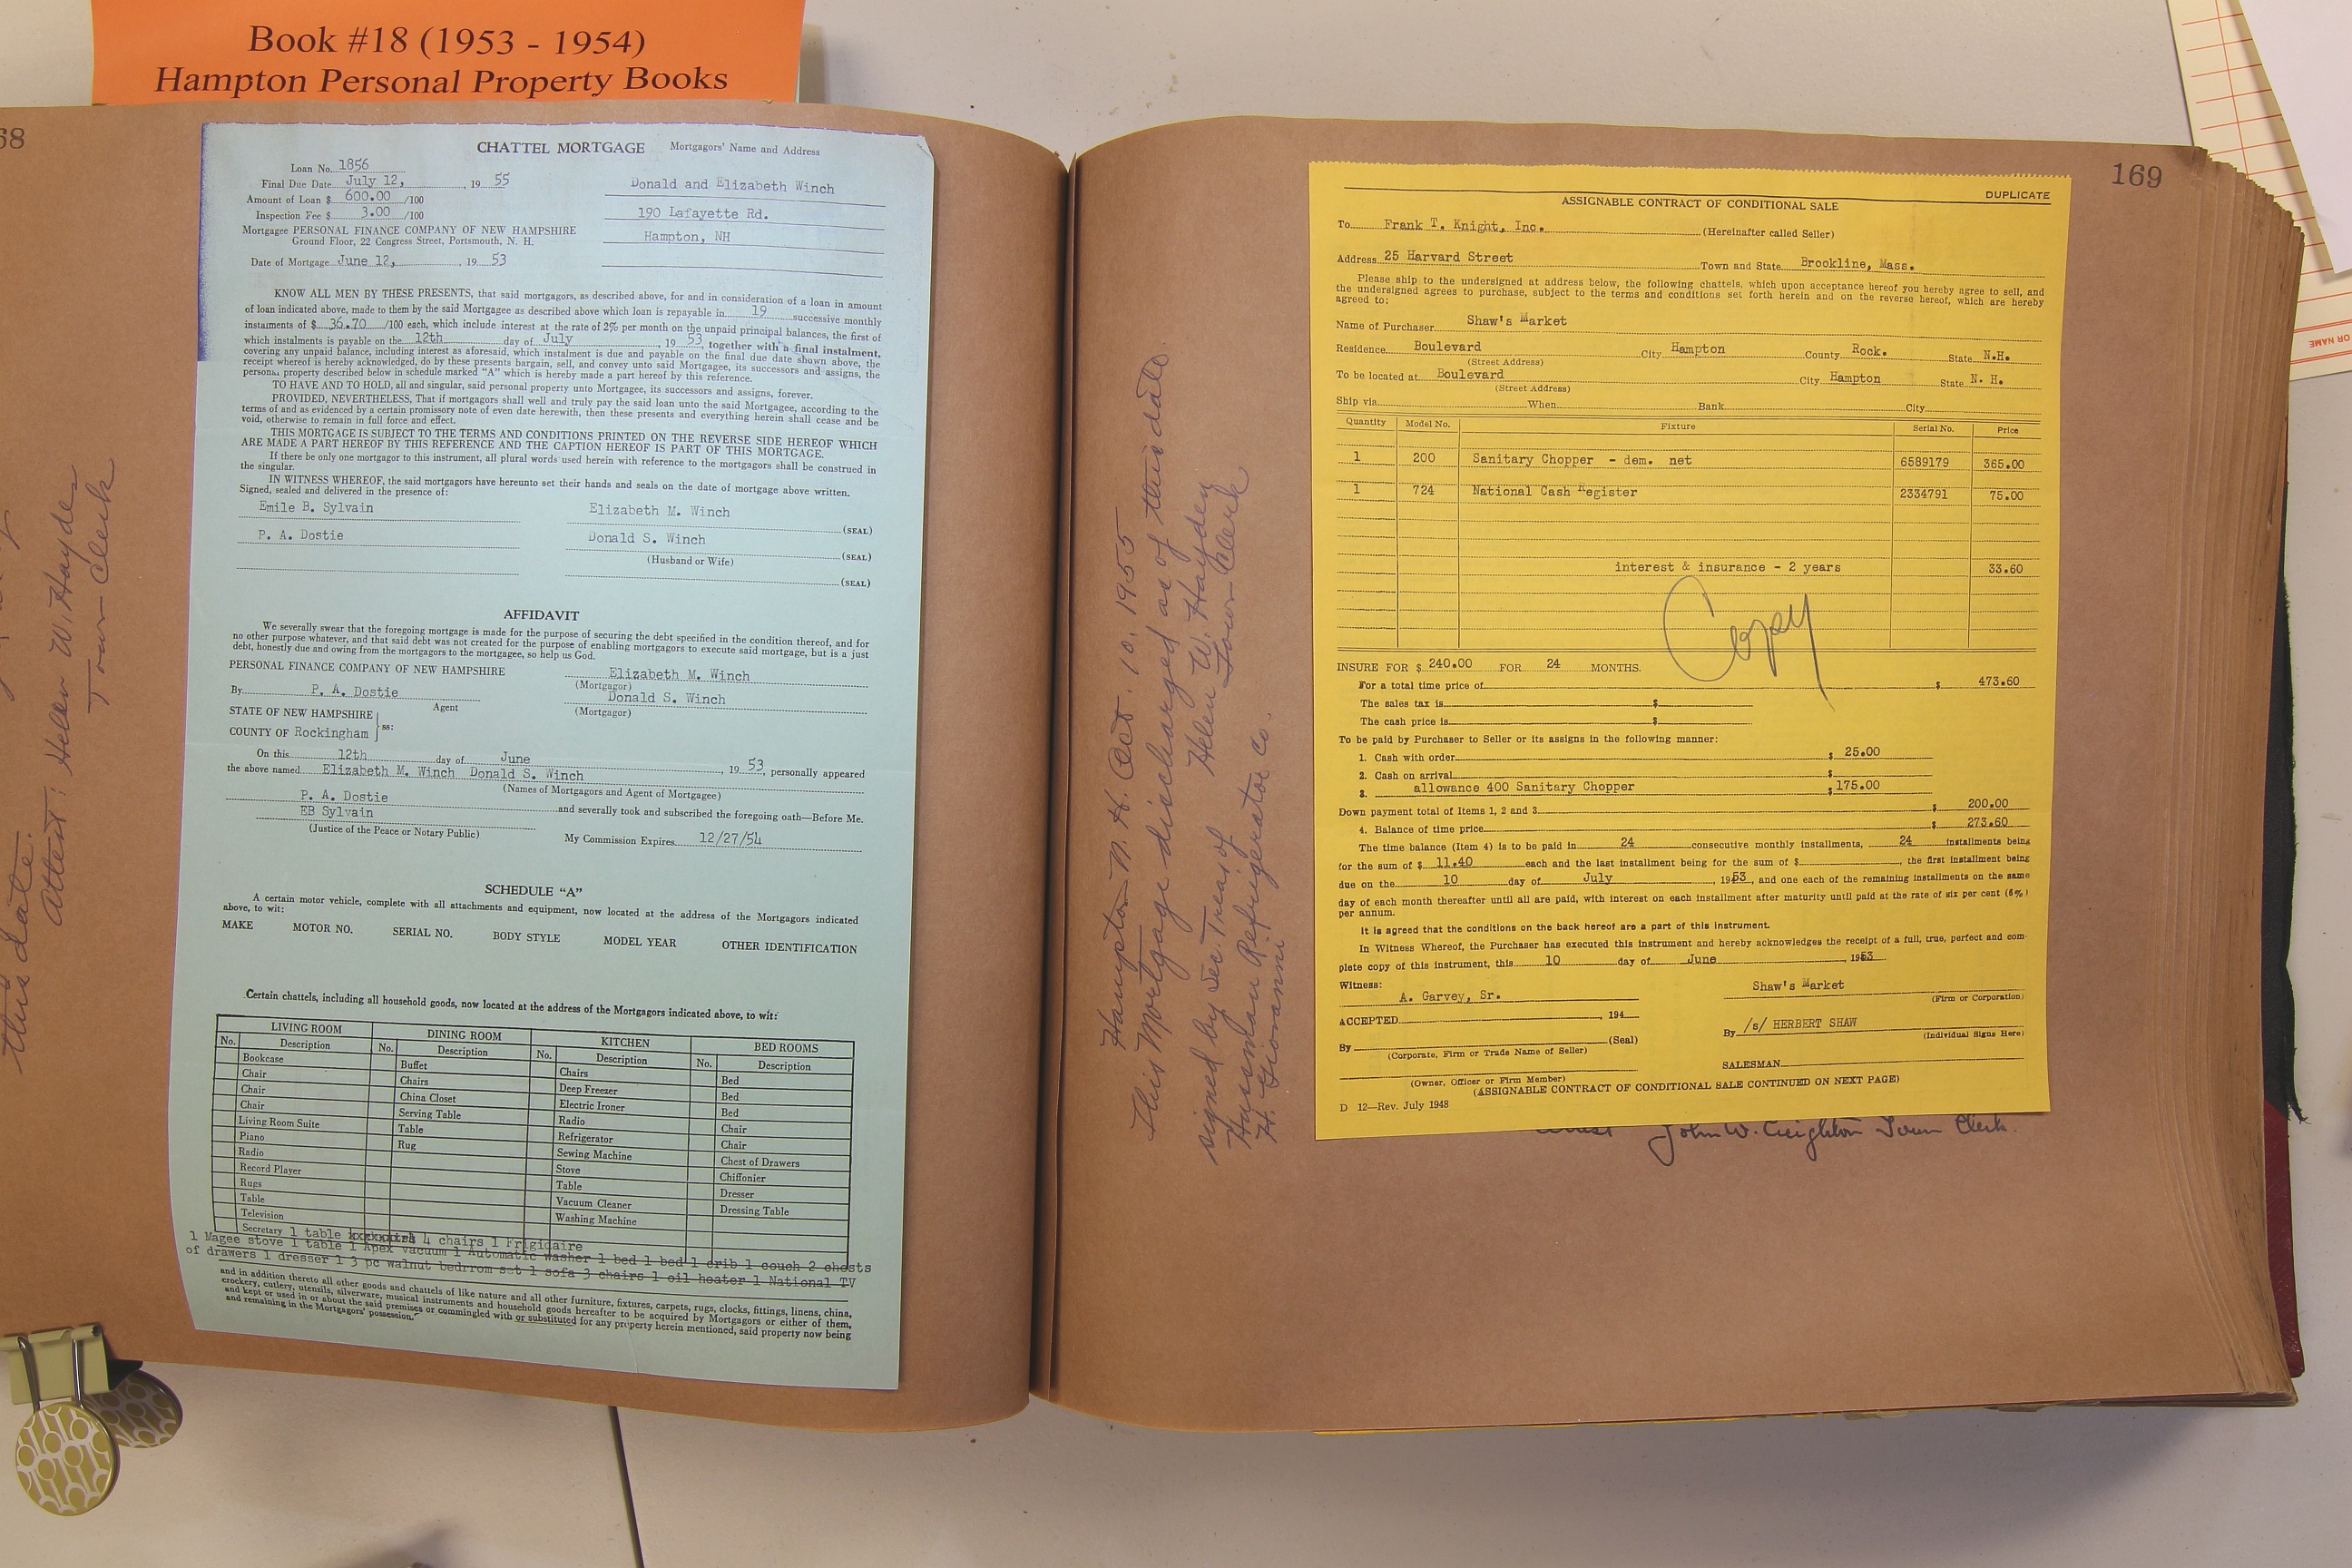 Book #18 (1953 - 1954)
Hampton Personal Property Books
68
this date.
Attest: Helen W. Hayden
Town Clerk
CHATTEL MORTGAGE Mortgagors' Name and Address
Loan No. 1856
Final Due Date July 12, , 19 55
Amount of Loan $ 600.00 /100
Inspection Fee $ 3.00 /100
Mortgagee PERSONAL FINANCE COMPANY OF NEW HAMPSHIRE
Ground Floor, 22 Congress Street, Portsmouth, N. H.
Date of Mortgage June 12, , 19 53
Donald and Elizabeth Winch
190 Lafayette Rd.
Hampton, NH
KNOW ALL MEN BY THESE PRESENTS, that said mortgagors, as described above, for and in consideration of a loan in amount
of loan indicated above, made to them by the said Mortgagee as described above which loan is repayable in 19 successive monthly
instalments of $ 36.70 /100 each, which include interest at the rate of 2% per month on the unpaid principal balances, the first of
which instalments is payable on the 12th day of July , 19 53, together with a final instalment,
covering any unpaid balance, including interest as aforesaid, which instalment is due and payable on the final due date shown above, the
receipt whereof is hereby acknowledged, do by these presents bargain, sell, and convey unto said Mortgagee, its successors and assigns, the
personal property described below in schedule marked "A" which is hereby made a part hereof by this reference.
TO HAVE AND TO HOLD, all and singular, said personal property unto Mortgagee, its successors and assigns, forever.
PROVIDED, NEVERTHELESS, That if mortgagors shall well and truly pay the said loan unto the said Mortgagee, according to the
terms of and as evidenced by a certain promissory note of even date herewith, then these presents and everything herein shall cease and be
void, otherwise to remain in full force and effect.
THIS MORTGAGE IS SUBJECT TO THE TERMS AND CONDITIONS PRINTED ON THE REVERSE SIDE HEREOF WHICH
ARE MADE A PART HEREOF BY THIS REFERENCE AND THE CAPTION HEREOF IS PART OF THIS MORTGAGE.
If there be only one mortgagor to this instrument, all plural words used herein with reference to the mortgagors shall be construed in
the singular.
IN WITNESS WHEREOF, the said mortgagors have hereunto set their hands and seals on the date of mortgage above written.
Signed, sealed and delivered in the presence of:
Emile B. Sylvain Elizabeth M. Winch (SEAL)
P. A. Dostie Donald S. Winch (SEAL)
(Husband or Wife)
(SEAL)
AFFIDAVIT
We severally swear that the foregoing mortgage is made for the purpose of securing the debt specified in the condition thereof, and for
no other purpose whatever, and that said debt was not created for the purpose of enabling mortgagors to execute said mortgage, but is a just
debt, honestly due and owing from the mortgagors to the mortgagee, so help us God.
PERSONAL FINANCE COMPANY OF NEW HAMPSHIRE Elizabeth M. Winch
(Mortgagor)
By P. A. Dostie Donald S. Winch
Agent (Mortgagor)
STATE OF NEW HAMPSHIRE
ss:
COUNTY OF Rockingham
On this 12th day of June , 19 53, personally appeared
the above named Elizabeth M. Winch Donald S. Winch
(Names of Mortgagors and Agent of Mortgagee)
P. A. Dostie and severally took and subscribed the foregoing oath—Before Me.
EB Sylvain
(Justice of the Peace or Notary Public) My Commission Expires 12/27/54
SCHEDULE "A"
A certain motor vehicle, complete with all attachments and equipment, now located at the address of the Mortgagors indicated
above, to wit:
MAKE MOTOR NO. SERIAL NO. BODY STYLE MODEL YEAR OTHER IDENTIFICATION
Certain chattels, including all household goods, now located at the address of the Mortgagors indicated above, to wit:
LIVING ROOM DINING ROOM KITCHEN BED ROOMS
No. Description No. Description No. Description No. Description
Bookcase Buffet Chairs Bed
Chair Chairs Deep Freezer Bed
Chair China Closet Electric Ironer Bed
Chair Serving Table Radio Chair
Living Room Suite Table Refrigerator Chair
Piano Rug Sewing Machine Chest of Drawers
Radio Stove Chiffonier
Record Player Table Dresser
Rugs Vacuum Cleaner Dressing Table
Table Washing Machine
Television
Secretary 1 table 4 chairs 1 Frigidaire
1 Magee stove 1 table 1 Apex vacuum 1 Automatic washer 1 bed 1 bed 1 crib 1 couch 2 chests
of drawers 1 dresser 1 3 pc walnut bedrrom set 1 sofa 3 chairs 1 oil heater 1 National TV
and in addition thereto all other goods and chattels of like nature and all other furniture, fixtures, carpets, rugs, clocks, fittings, linens, china,
crockery, cutlery, utensils, silverware, musical instruments and household goods hereafter to be acquired by Mortgagors or either of them,
and kept or used in or about the said premises or commingled with or substituted for any property herein mentioned, said property now being
and remaining in the Mortgagors' possession.
169
Hampton N. H. Oct. 10, 1955
This Mortgage discharged as of this date.
signed by Sec. Treas of Helen W. Hayden
Hussman Refrigerator Co. Town Clerk
H. Giovanni
DUPLICATE
ASSIGNABLE CONTRACT OF CONDITIONAL SALE
To Frank T. Knight, Inc. (Hereinafter called Seller)
Address 25 Harvard Street Town and State Brookline, Mass.
Please ship to the undersigned at address below, the following chattels, which upon acceptance hereof you hereby agree to sell, and
the undersigned agrees to purchase, subject to the terms and conditions set forth herein and on the reverse hereof, which are hereby
agreed to:
Name of Purchaser Shaw's Market
Residence Boulevard City Hampton County Rock. State N.H.
(Street Address)
To be located at Boulevard City Hampton State N. H.
(Street Address)
Ship via When Bank City
Quantity Model No. Fixture Serial No. Price
1 200 Sanitary Chopper - dem. net 6589179 365.00
1 724 National Cash Register 2334791 75.00
interest & insurance - 2 years 33.60
Copy
INSURE FOR $ 240.00 FOR 24 MONTHS.
For a total time price of $ 473.60
The sales tax is $
The cash price is $
To be paid by Purchaser to Seller or its assigns in the following manner:
1. Cash with order $ 25.00
2. Cash on arrival $
3. allowance 400 Sanitary Chopper $ 175.00
Down payment total of Items 1, 2 and 3 $ 200.00
4. Balance of time price $ 273.60
The time balance (Item 4) is to be paid in 24 consecutive monthly installments, 24 installments being
for the sum of $ 11.40 each and the last installment being for the sum of $ , the first installment being
due on the 10 day of July , 1953, and one each of the remaining installments on the same
day of each month thereafter until all are paid, with interest on each installment after maturity until paid at the rate of six per cent (6%)
per annum.
It is agreed that the conditions on the back hereof are a part of this instrument.
In Witness Whereof, the Purchaser has executed this instrument and hereby acknowledges the receipt of a full, true, perfect and com-
plete copy of this instrument, this 10 day of June , 1953
Witness: Shaw's Market
A. Garvey, Sr. (Firm or Corporation)
ACCEPTED , 194
By /s/ HERBERT SHAW
By (Seal) (Individual Signs Here)
(Corporate, Firm or Trade Name of Seller)
SALESMAN
(Owner, Officer or Firm Member)
(ASSIGNABLE CONTRACT OF CONDITIONAL SALE CONTINUED ON NEXT PAGE)
D 12—Rev. July 1948
John W. Creighton Town Clerk.
OR NAME